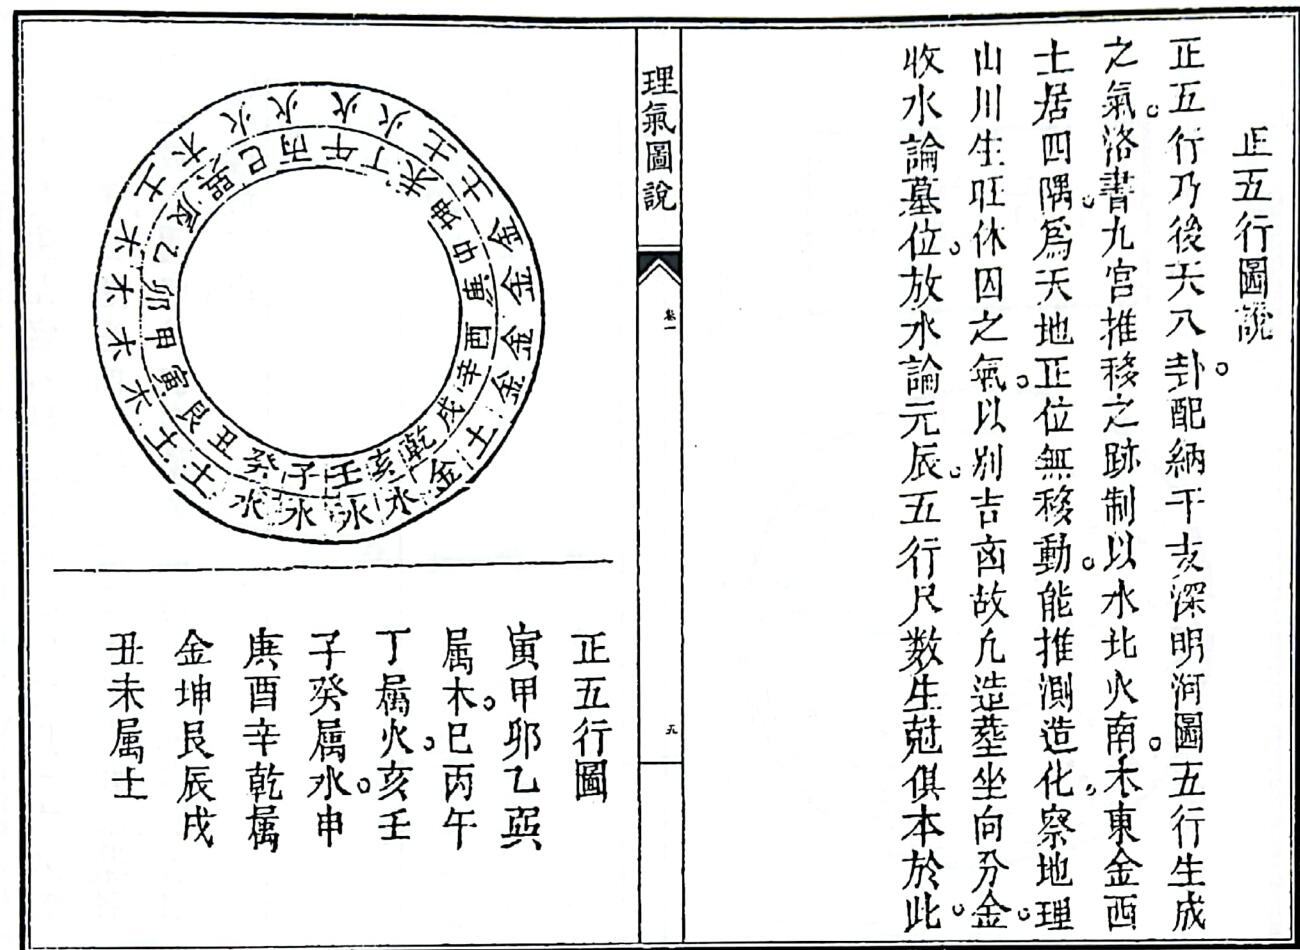 正五行圖說
正五行乃後天八卦。配納干支深明河圖五行生成
之氣。洛書九宮推移之跡制以水北火南。木東金西
土居四隅。爲天地正位無移動。能推測造化。察地理
山川生旺休囚之氣。以別吉凶故凡造塟坐向分金。
收水論墓位。放水論元辰。五行尺數生尅俱本於此。
理氣圖說
卷一
九
水水水土土木木木木土木火火火火土土金金金金土金水
壬子癸丑艮寅甲卯乙辰巽巳丙午丁未坤申庚酉辛戌乾亥
正五行圖
寅甲卯乙巽
属木。巳丙午
丁屬火。亥壬
子癸属水。申
庚酉辛乾属
金坤艮辰戌
丑未属土